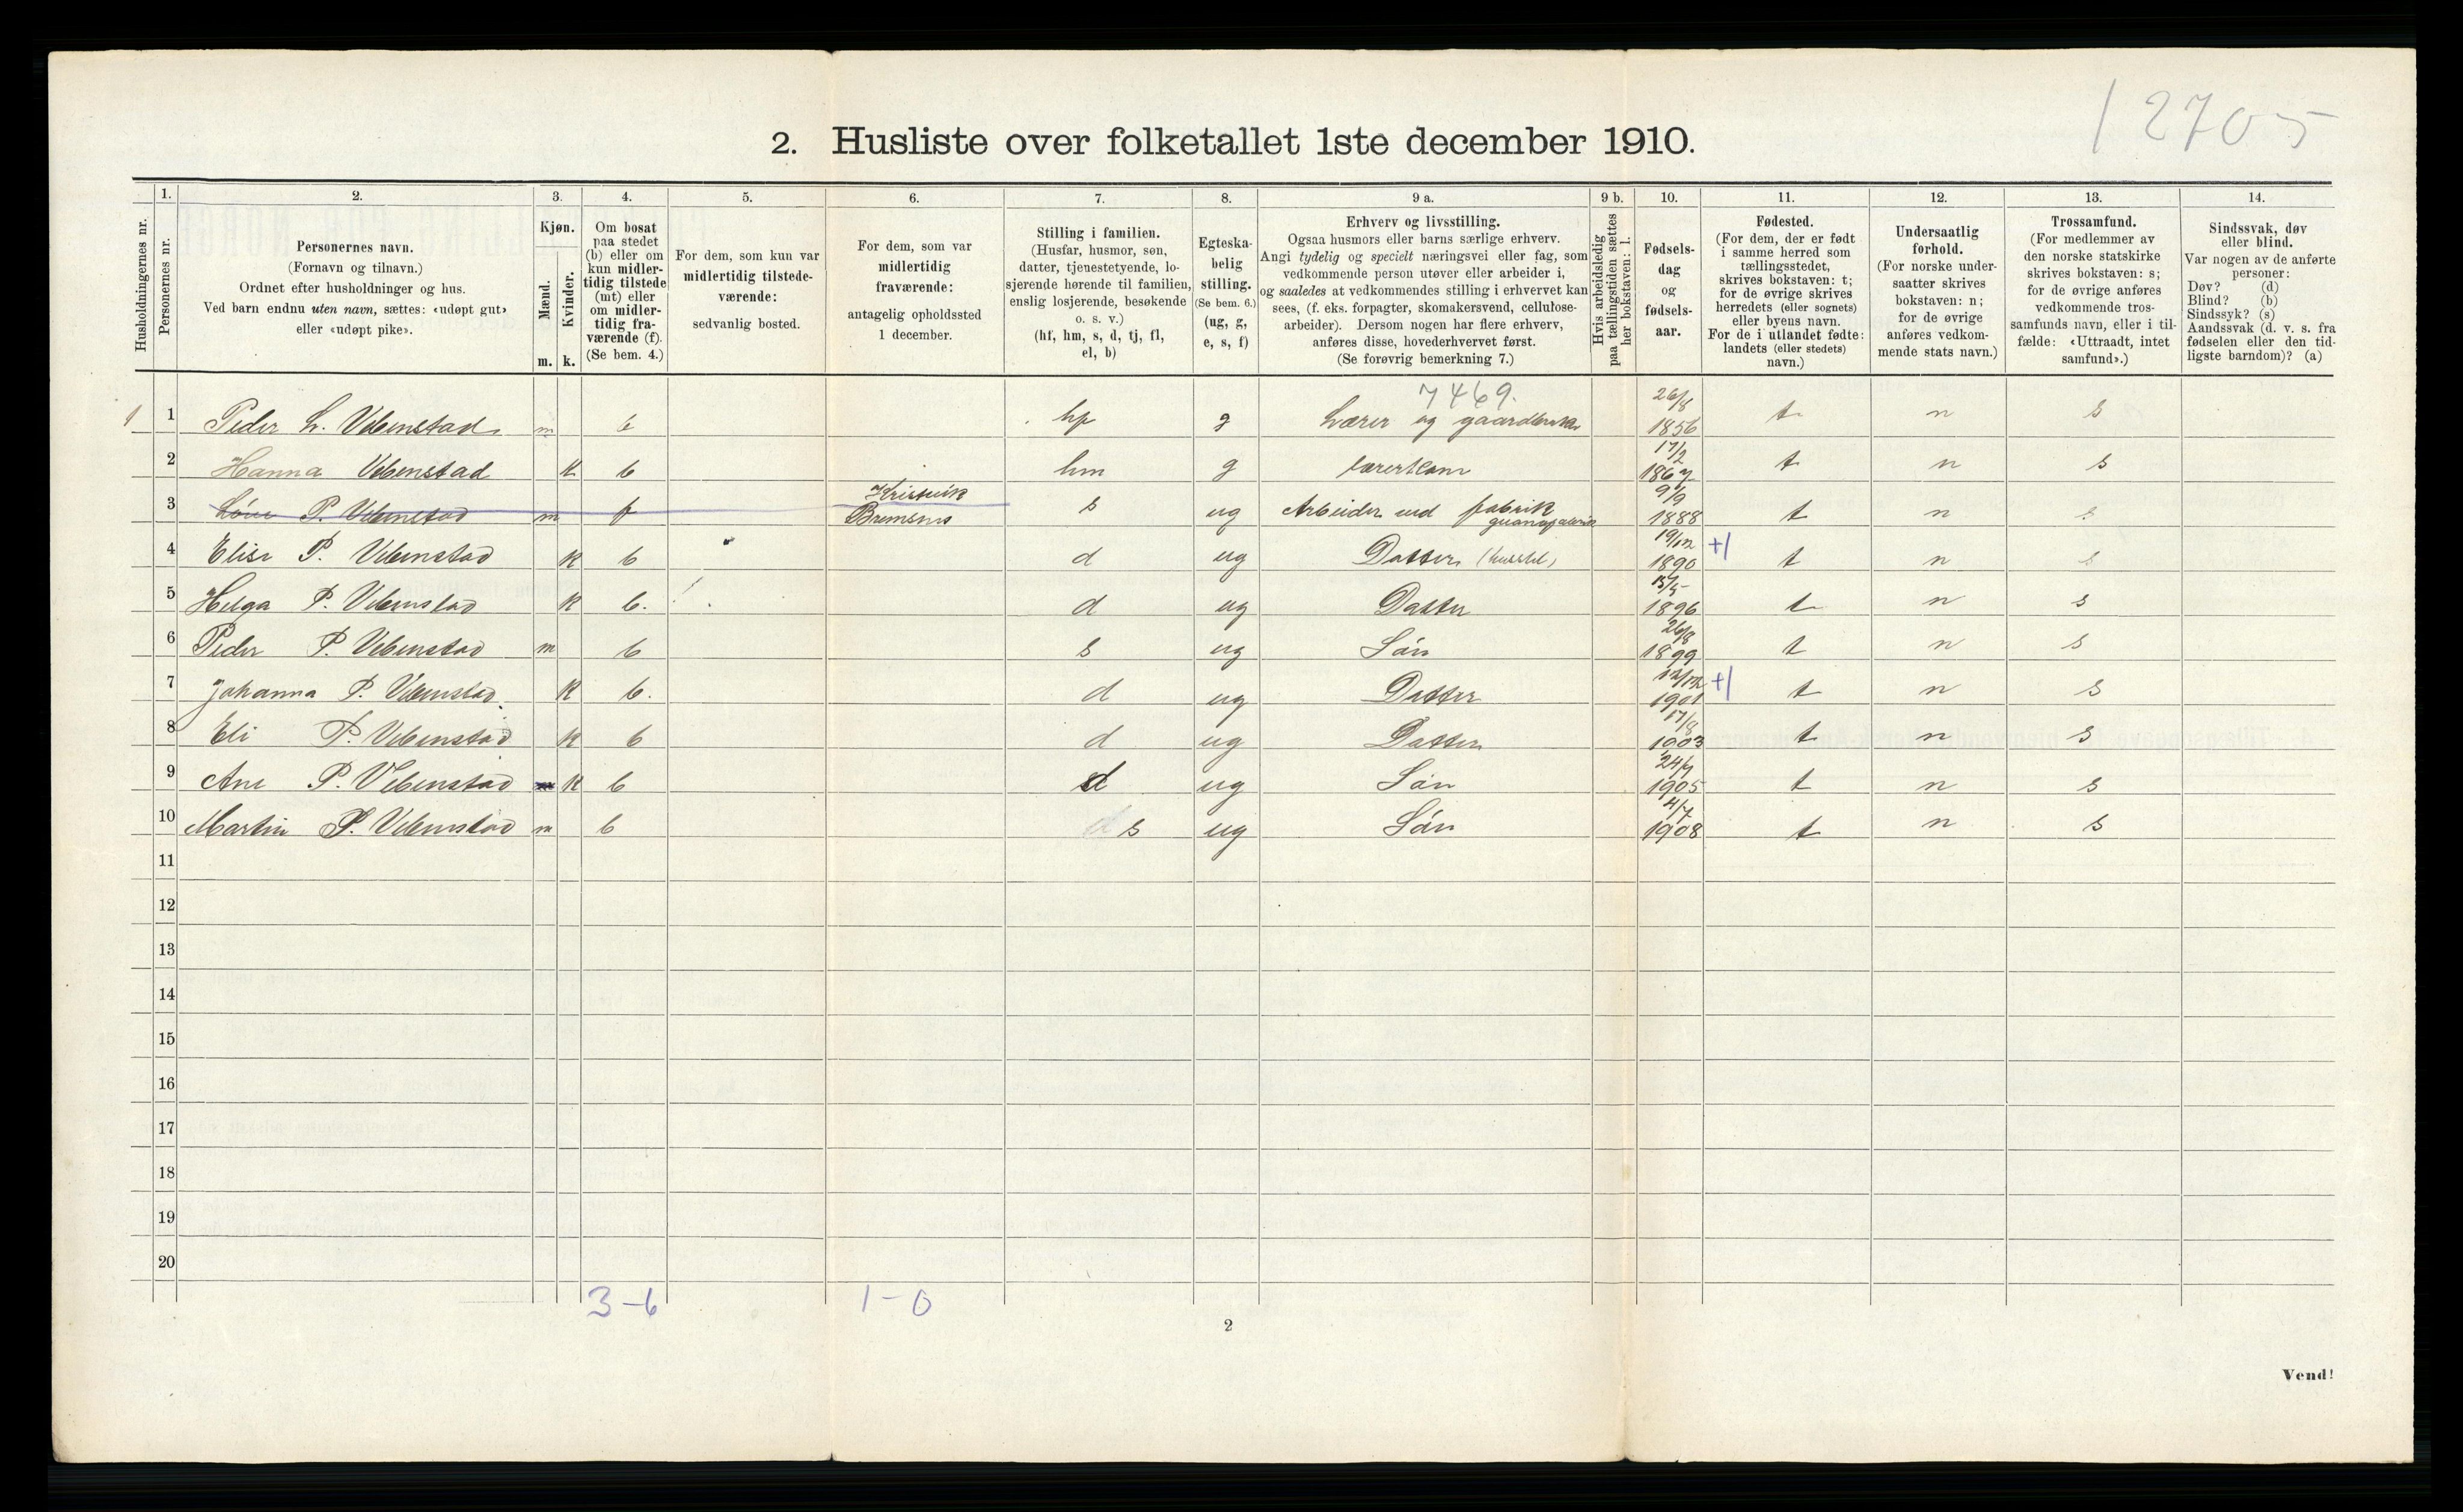 12705
2. Husliste over folketallet 1ste december 1910.
Husholdningernes nr.
1.
Personernes nr.
2.
Personernes navn.
(Fornavn og tilnavn.)
Ordnet efter husholdninger og hus.
Ved barn endnu uten navn, sættes: «udøpt gut»
eller «udøpt pike».
3.
Kjøn.
Mænd.
Kvinder.
m. k.
4.
Om bosat
paa stedet
(b) eller om
kun midler-
tidig tilstede
(mt) eller
om midler-
tidig fra-
værende (f).
(Se bem. 4.)
5.
For dem, som kun var
midlertidig tilstede-
værende:
sedvanlig bosted.
6.
For dem, som var
midlertidig
fraværende:
antagelig opholdssted
1 december.
7.
Stilling i familien.
(Husfar, husmor, søn,
datter, tjenestetyende, lo-
sjerende hørende til familien,
enslig losjerende, besøkende
o. s. v.)
(hf, hm, s, d, tj, fl,
el, b)
8.
Egteska-
belig
stilling.
(Se bem. 6.)
(ug, g,
e, s, f)
9 a.
Erhverv og livsstilling.
Ogsaa husmors eller barns særlige erhverv.
Angi tydelig og specielt næringsvei eller fag, som
vedkommende person utøver eller arbeider i,
og saaledes at vedkommendes stilling i erhvervet kan
sees, (f. eks. forpagter, skomakersvend, cellulose-
arbeider). Dersom nogen har flere erhverv,
anføres disse, hovederhvervet først.
(Se forøvrig bemerkning 7.)
9 b.
Hvis arbeidsledig
paa tællingstiden sættes
her bokstaven: l.
10.
Fødsels-
dag
og
fødsels-
aar.
11.
Fødested.
(For dem, der er født
i samme herred som
tællingsstedet,
skrives bokstaven: t;
for de øvrige skrives
herredets (eller sognets)
eller byens navn.
For de i utlandet fødte:
landets (eller stedets)
navn.)
12.
Undersaatlig
forhold.
(For norske under-
saatter skrives
bokstaven: n;
for de øvrige
anføres vedkom-
mende stats navn.)
13.
Trossamfund.
(For medlemmer av
den norske statskirke
skrives bokstaven: s;
for de øvrige anføres
vedkommende tros-
samfunds navn, eller i til-
fælde: «Uttraadt, intet
samfund».)
14.
Sindssvak, døv
eller blind.
Var nogen av de anførte
personer:
Døv? (d)
Blind? (b)
Sindssyk? (s)
Aandssvak (d. v. s. fra
fødselen eller den tid-
ligste barndom)? (a)
7469.
1 1 Peder L. Vebenstad m b hf g Lærer og gaardbruker 26/8 1856 t n s
2 Hanna Vebenstad k b hm g lærerkone 17/2 1867 t n s
3 P. Vebenstad m f Kristvik Bremsnes s ug Arbeider ved fabrik guanofabrik 9/9 1888 t n s
4 Elise P. Vebenstad k b d ug Datter 19/12 1890 +1 t n s
5 Helga P. Vebenstad k b. d ug Datter 15/5 1896 t n s
6 Peder P. Vebenstad m b s ug Søn 26/8 1899 t n s
7 Johanna P. Vebenstad k b. d ug Datter 12/12 1901 +1 t n s
8 Eli P. Vebenstad k b d ug Datter 17/8 1903 t n s
9 Ane P. Vebenstad m k b d ug Søn 24/7 1905 t n s
10 Martin P. Vebenstad m b d s ug Søn 4/7 1908 t n s
11
12
13
14
15
16
17
18
19
20
3-6 1-0
2
Vend!